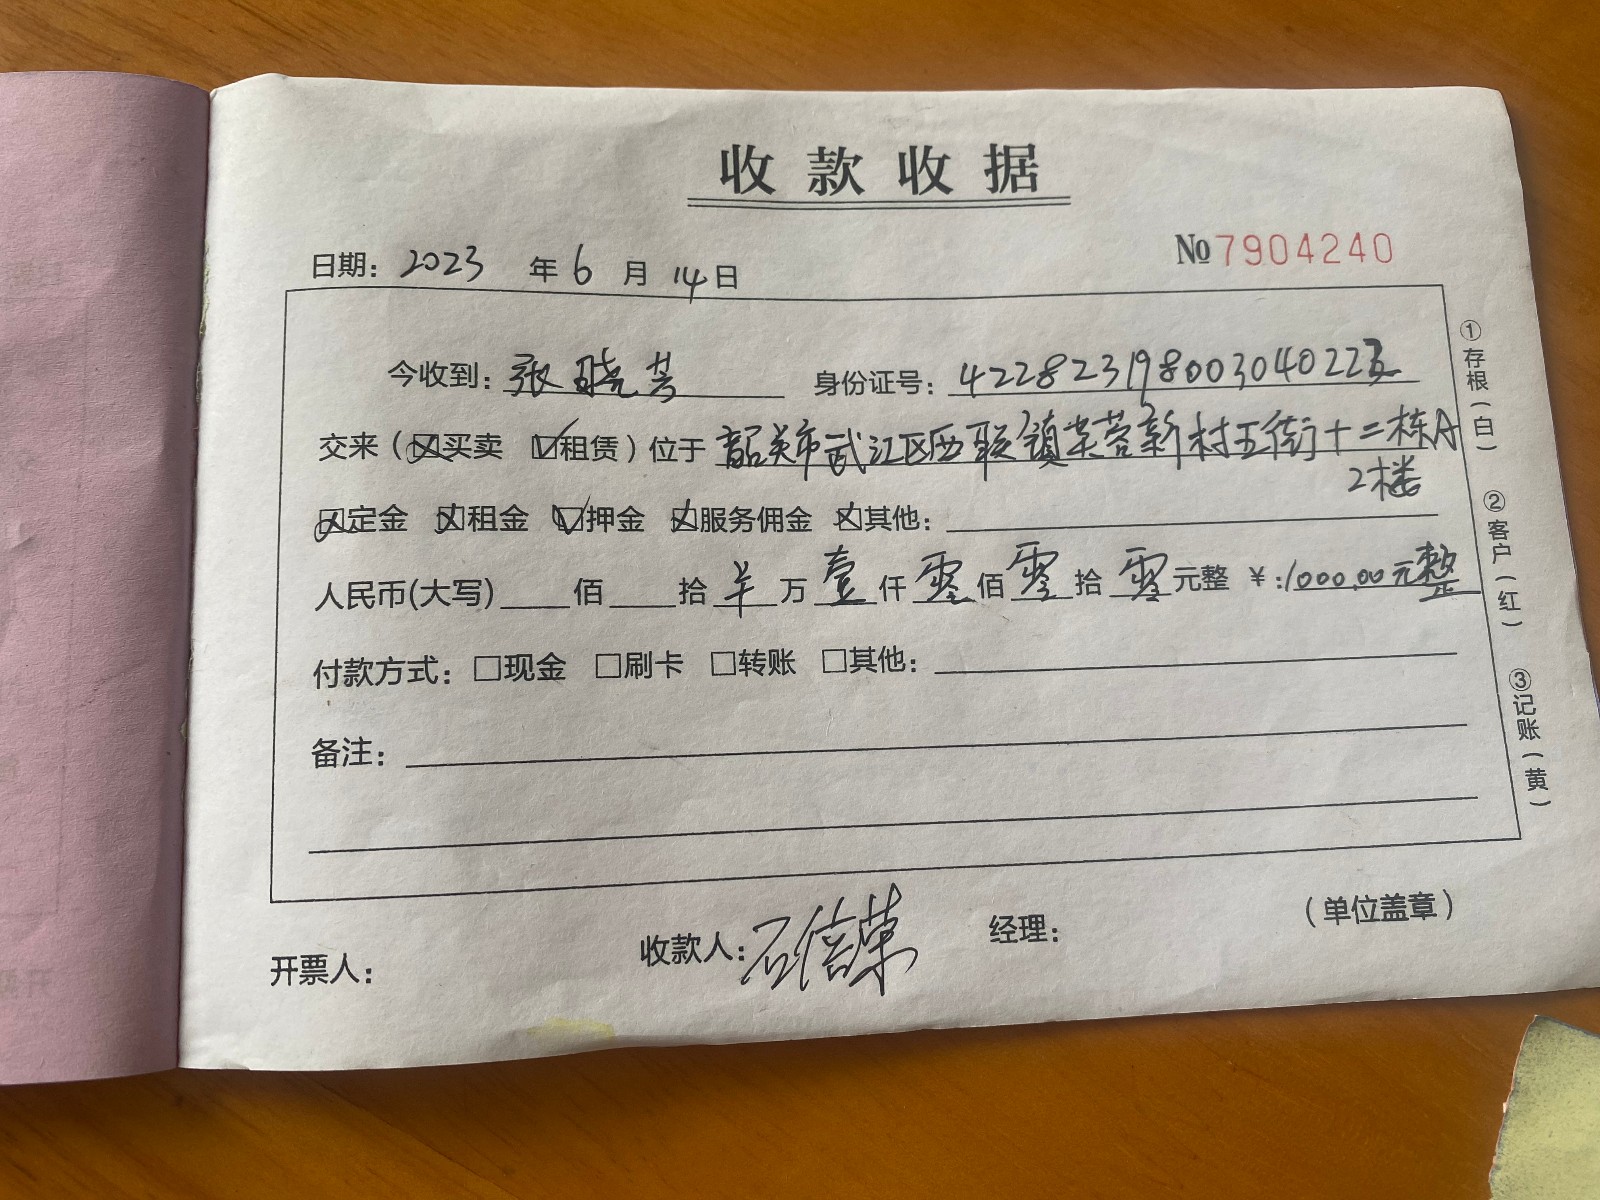 收款收据
日期：2023 年 6 月 14 日 №7904240
今收到：张晓芸 身份证号：
交来（☒买卖 ☑租赁）位于 韶关市武江区西联镇芙蓉新村五街十二栋A
2楼
☒定金 ☒租金 ☑押金 ☒服务佣金 ☒其他：
人民币(大写) 佰 拾 羊 万 壹 仟 零 佰 零 拾 零 元整 ￥:1000.00元整
付款方式：□现金 □刷卡 □转账 □其他：
备注：
开票人： 收款人：石信荣 经理： （单位盖章）
①存根（白）
②客户（红）
③记账（黄）